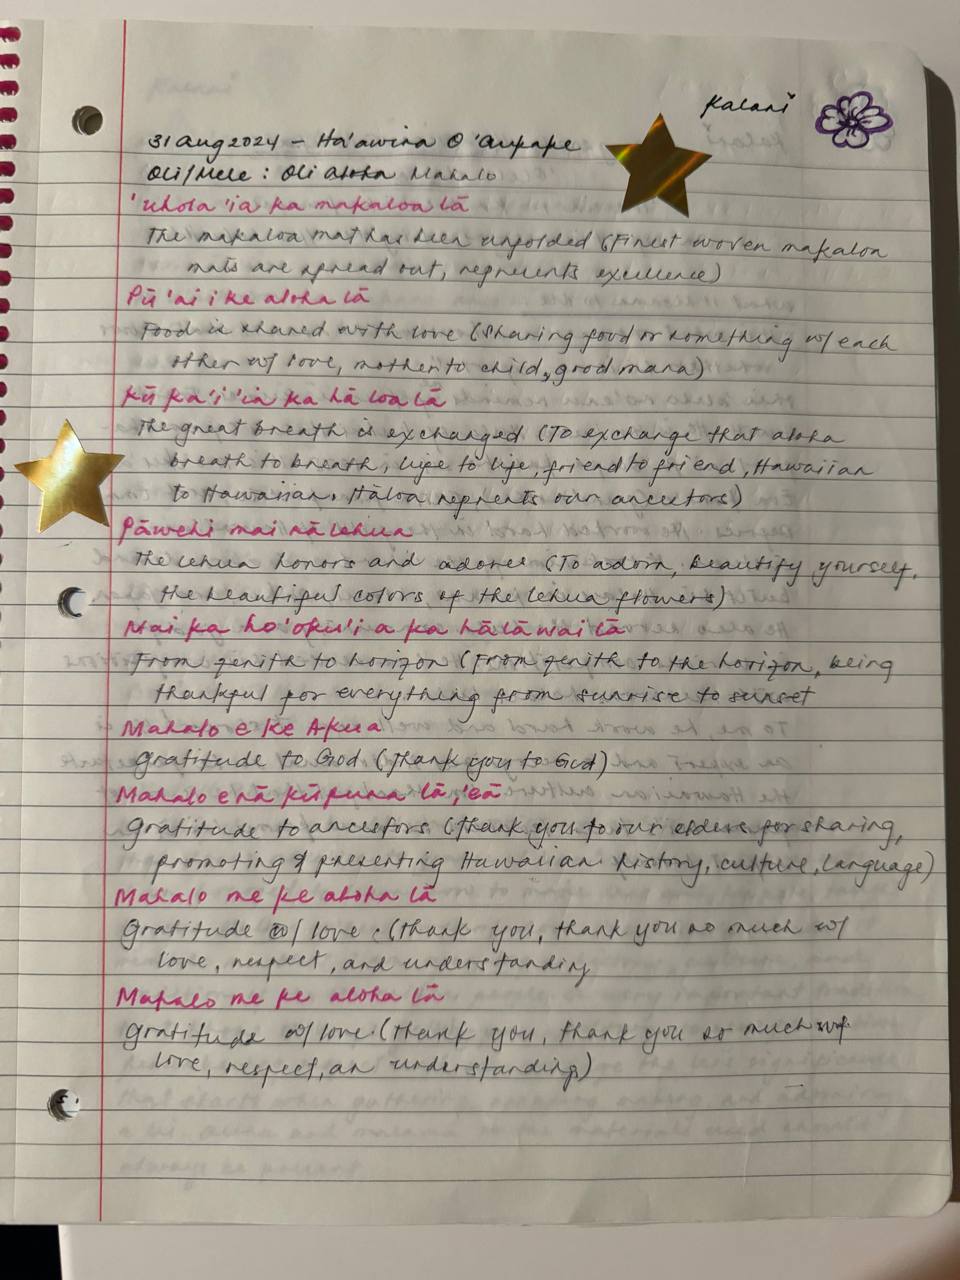 Kalani
31 Aug 2024 – Ha'awina O 'Aupape
Oli/Mele : Oli Aloha Mahalo
'Uhola 'ia ka makaloa lā
The makaloa mat has been unfolded (Finest woven makaloa
mats are spread out, represents excellence)
Pū 'ai i ke aloha lā
Food is shared with love (Sharing food or something w/ each
other w/ love, mother to child, good mana)
Kū ka'i 'ia ka hā loa lā
The great breath is exchanged (To exchange that aloha
breath to breath, life to life, friend to friend, Hawaiian
to Hawaiian. Hāloa reprents our ancestors)
Pāwehi mai nā lehua
The lehua honors and adores (To adorn, beautify yourself,
the beautiful colors of the lehua flowers)
Mai ka ho'oku'i a ka hālāwai lā
From zenith to horizon (From zenith to the horizon, being
thankful for everything from sunrise to sunset
Mahalo e Ke Akua
Gratitude to God (Thank you to God)
Mahalo e nā kūpuna lā, 'eā
Gratitude to ancestors (thank you to our elders for sharing,
promoting & presenting Hawaiian history, culture, language)
Mahalo me ke aloha lā
Gratitude w/ love (thank you, thank you so much w/
love, respect, and understanding
Mahalo me ke aloha lā
Gratitude w/ love (thank you, thank you so much
love, respect, an understanding)